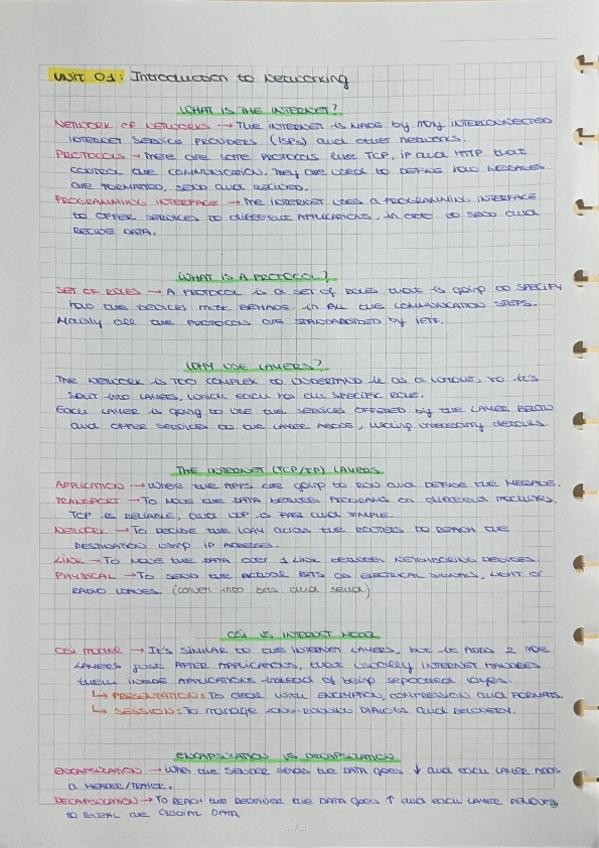 UNIT 01: Introduction to Networking
WHAT IS THE INTERNET?
NETWORK OF NETWORKS → THE INTERNET IS MADE by MANY INTERCONNECTED
INTERNET SERVICE PROVIDERS (ISPs) and other networks.
PROTOCOLS → There are some PROTOCOLS like TCP, IP and HTTP that
CONTROL the COMMUNICATION. They are used to DEFINE HOW MESSAGES
are FORMATTED, SEND and RECIVED.
PROGRAMMING INTERFACE → The INTERNET USES a PROGRAMMING INTERFACE
to OFFER SERVICES to different APPLICATIONS, in order to SEND and
RECIVE DATA.
WHAT IS A PROTOCOL?
SET OF RULES → A PROTOCOL is a SET OF RULES that is going to SPECIFY
how the DEVICES must BEHAVE in ALL the COMMUNICATION STEPS.
Mainly all the PROTOCOLS are STANDARDIZED by IETF.
WHY USE LAYERS?
The NETWORK is TOO COMPLEX to UNDERSTAND it as a WHOLE, so it's
SPLIT into LAYERS, which each has an SPECIFIC ROLE.
Each LAYER is going to USE the SERVICES OFFERED by the LAYER BELOW
and OFFER SERVICES to the LAYER ABOVE, unnecessary details.
THE INTERNET (TCP/IP) LAYERS
APPLICATION → Where the APPS are going to RUN and DEFINE the MESSAGE.
TRANSPORT → To MOVE the DATA between PROGRAMS on different MACHINES.
TCP is RELIABLE, and UDP is FAST and SIMPLE.
NETWORK → To DECIDE the WAY across the ROUTERS to REACH the
DESTINATION using IP ADRESSES.
LINK → To MOVE the DATA over 1 LINK between NEIGHBORING DEVICES.
PHYSICAL → To SEND the ACTUAL BITS as ELECTRICAL SIGNALS, LIGHT or
RADIO WAVES. (convert into bits and send)
OSI vs. INTERNET MODEL
OSI MODEL → It's SIMILAR to the INTERNET LAYERS, but it ADDS 2 more
LAYERS just AFTER APPLICATIONS, that usually INTERNET HANDLES
them INSIDE APPLICATIONS instead of being separated layers.
↳ PRESENTATION: To deal with ENCRYPTION, COMPRESSION and FORMATS.
↳ SESSION: To manage LONG-RUNNING DIALOGS and RECOVERY.
ENCAPSULATION vs DECAPSULATION
ENCAPSULATION → When the SENDER SENDS the DATA goes ↓ and each LAYER ADDS
a HEADER/TRAILER.
DECAPSULATION → To REACH the RECEIVER the DATA goes ↑ and each LAYER REMOVES
to REVEAL the CRUCIAL DATA
.../...